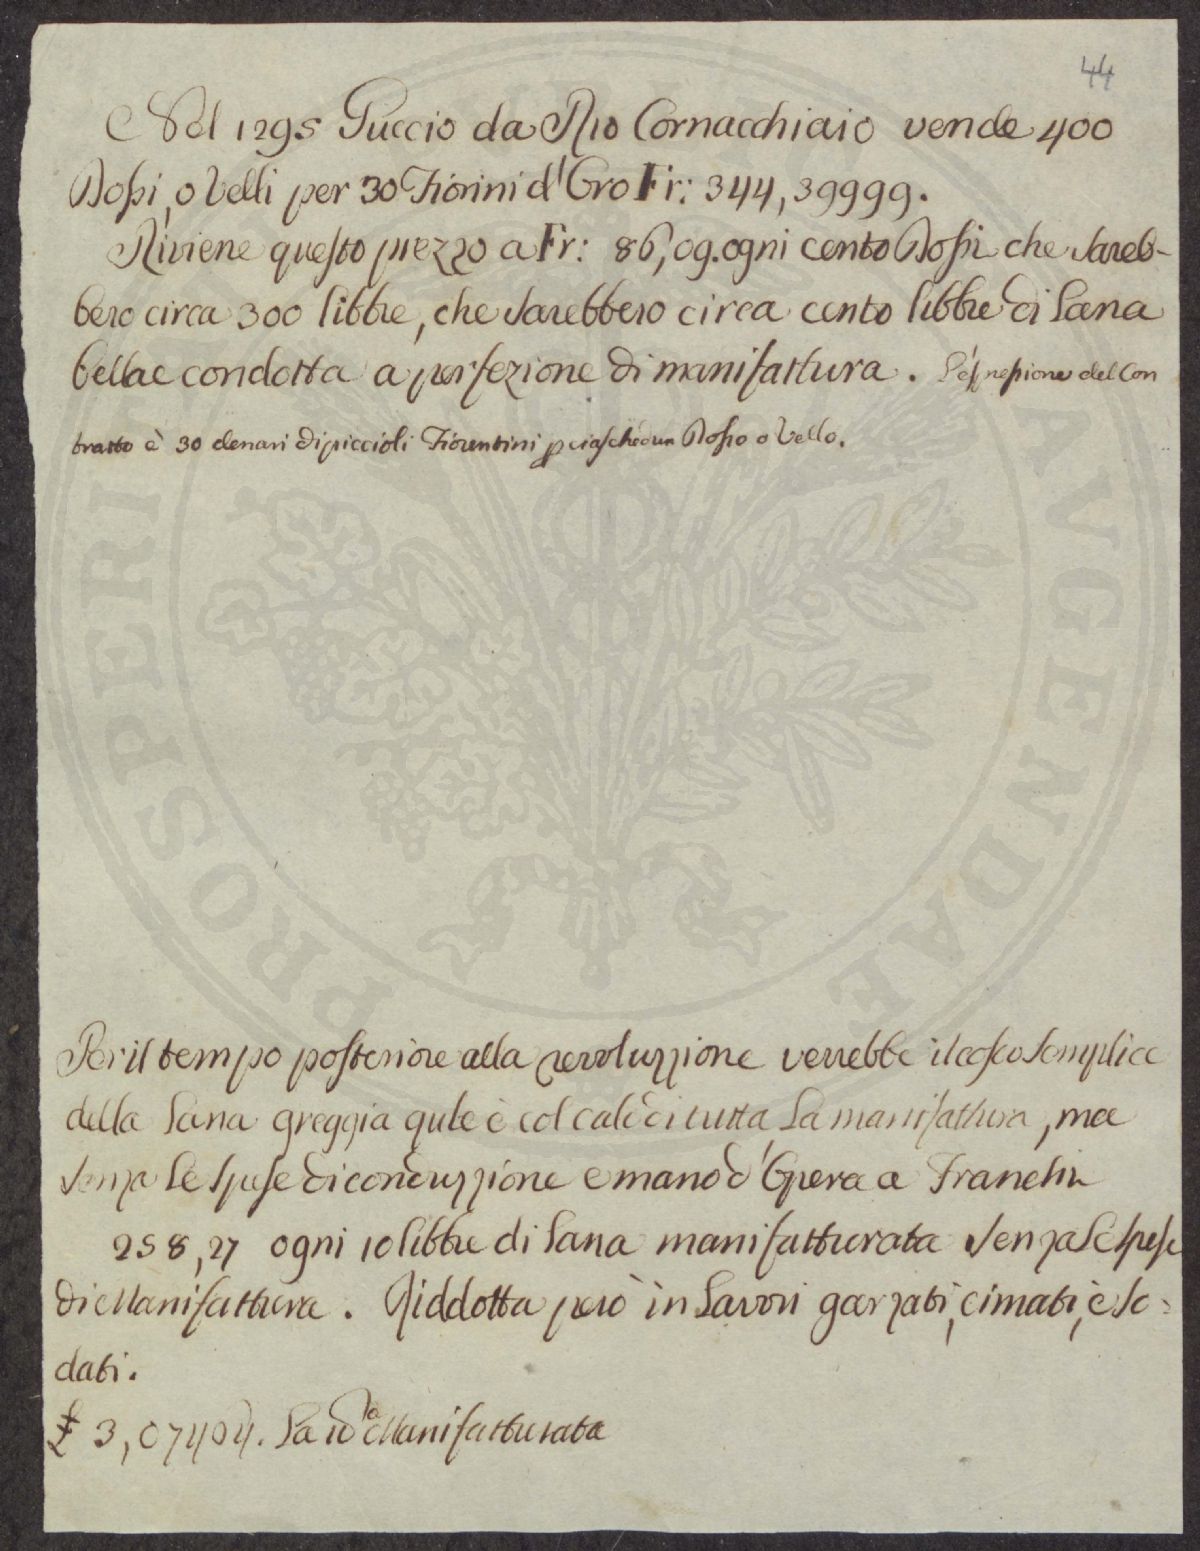 44
Nel 1295 Puccio da Rio Cornacchiaio vende 400
Bossi, o Velli per 30 Fiorini d'Oro Fr: 344,39999.
Riviene questo prezzo a Fr: 86,09. ogni cento Bossi che sareb-
bero circa 300 libbre, che sarebbero circa cento libbre di Lana
bella e condotta a perfezione di manifattura. L'espressione del Con
tratto è 30 denari di piccioli Fiorentini p ciaschedun Bosso o Vello.
PROSPERI AVGENDAE
Per il tempo posteriore alla revoluzzione verrebbe il costo semplice
della Lana greggia qule è col calo di tutta la manifattura, ma
senza le spese di conduzzione e mano d'Opera a Franchi
258,27 ogni 10 libbre di Lana manifatturata senza le spese
di Manifattura. Riddotta però in Lavori garzati, cimati, e so-
dati.
₤ 3,07404. La lb Manifatturata